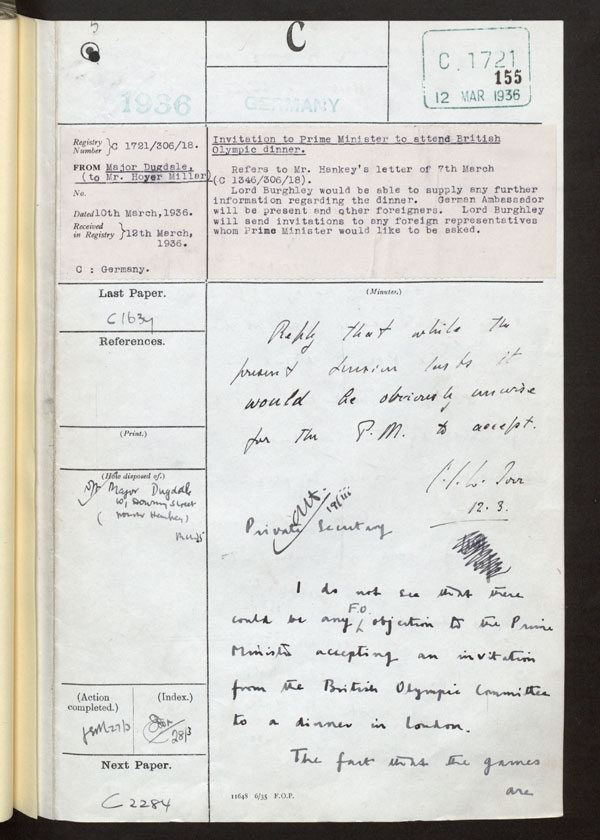 C
C 1721
155
12 MAR 1936
1936
GERMANY
Registry Number } C 1721/306/18.
FROM Major Dugdale,
(to Mr. Hoyer Millar)
No.
Dated 10th March, 1936.
Received in Registry } 12th March, 1936.
C : Germany.
Invitation to Prime Minister to attend British
Olympic dinner.
Refers to Mr. Hankey's letter of 7th March
(C 1346/306/18).
Lord Burghley would be able to supply any further
information regarding the dinner. German Ambassador
will be present and other foreigners. Lord Burghley
will send invitations to any foreign representatives
whom Prime Minister would like to be asked.
Last Paper.
C1634
References.
(Print.)
(How disposed of.)
Major Dugdale
10, Downing Street
(Action completed.)
(Index.)
28/3
Next Paper.
C 2284
(Minutes.)
Reply that while the
present tension lasts it
would be obviously unwise
for the P.M. to accept.
12.3.
Private Secretary
I do not see that there
could be any F.O. objection to the Prime
Minister accepting an invitation
from the British Olympic Committee
to a dinner in London.
The fact that the games
are
11648 6/35 F.O.P.